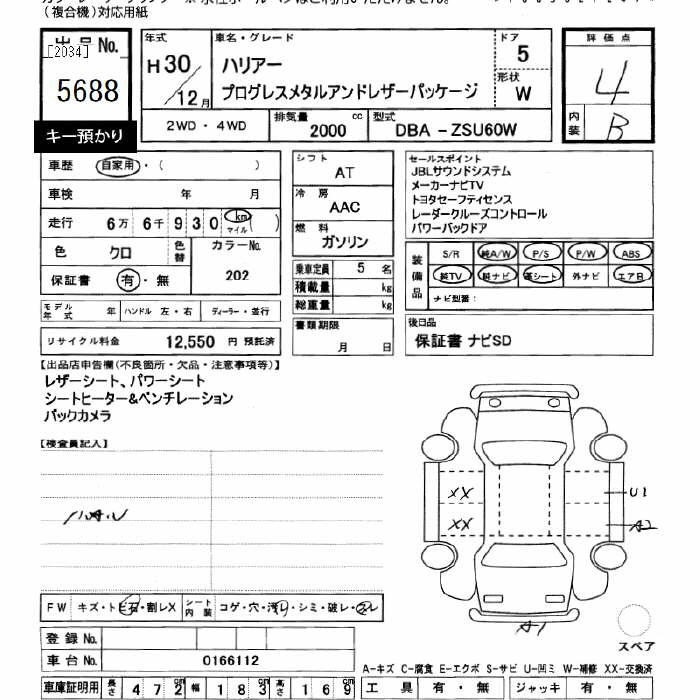 (複合機)対応用紙
出品No.
[2034]
5688
キー預かり
年式
H30/12月
車名・グレード
ハリアー
プログレスメタルアンドレザーパッケージ
ドア
5
形状
W
評価点
4
内装
B
2WD・4WD
排気量
2000 cc
型式
DBA－ZSU60W
車歴 自家用・( )
車検 年 月
走行 6万 6千 9 3 0 km マイル ( )
色 クロ
色替
カラーNo.
202
保証書 有・無
モデル年式 年 ハンドル 左・右 ディーラー・並行
リサイクル料金 12,550 円 預託済
シフト
AT
冷房
AAC
燃料
ガソリン
乗車定員 5 名
積載量 kg
総重量 kg
書類期限
月 日
セールスポイント
JBLサウンドシステム
メーカーナビTV
トヨタセーフティセンス
レーダークルーズコントロール
パワーバックドア
装備品
S/R 純A/W P/S P/W ABS
純TV 純ナビ 革シート 外ナビ エアB
ナビ型番：
後日品
保証書 ナビSD
【出品店申告欄(不良箇所・欠品・注意事項等)】
レザーシート、パワーシート
シートヒーター&ベンチレーション
バックカメラ
【検査員記入】
ハンキル
XX
XX
U1
A2
A1
スペア
FW キズ・トビ石・割レX
シート内装 コゲ・穴・汚レ・シミ・破レ・スレ
登録No.
車台No. 0166112
車庫証明用 長さ 472cm 幅 183cm 高さ 169cm
A-キズ C-腐食 E-エクボ S-サビ U-凹ミ W-補修 XX-交換済
工具 有・無 ジャッキ 有・無